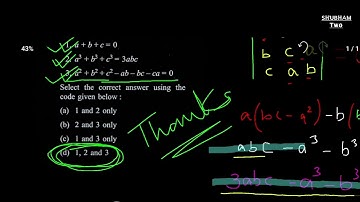 SHUBHAM
Two
43%
1/1
1. a + b + c = 0
2. a³ + b³ + c³ = 3abc
3. a² + b² + c² – ab – bc – ca = 0
Select the correct answer using the
code given below :
(a) 1 and 2 only
(b) 2 and 3 only
(c) 1 and 3 only
(d) 1, 2 and 3
Thanks
b c a
c a b
a(bc – a²) – b(
abc – a³ – b³
3abc – a³ – b³